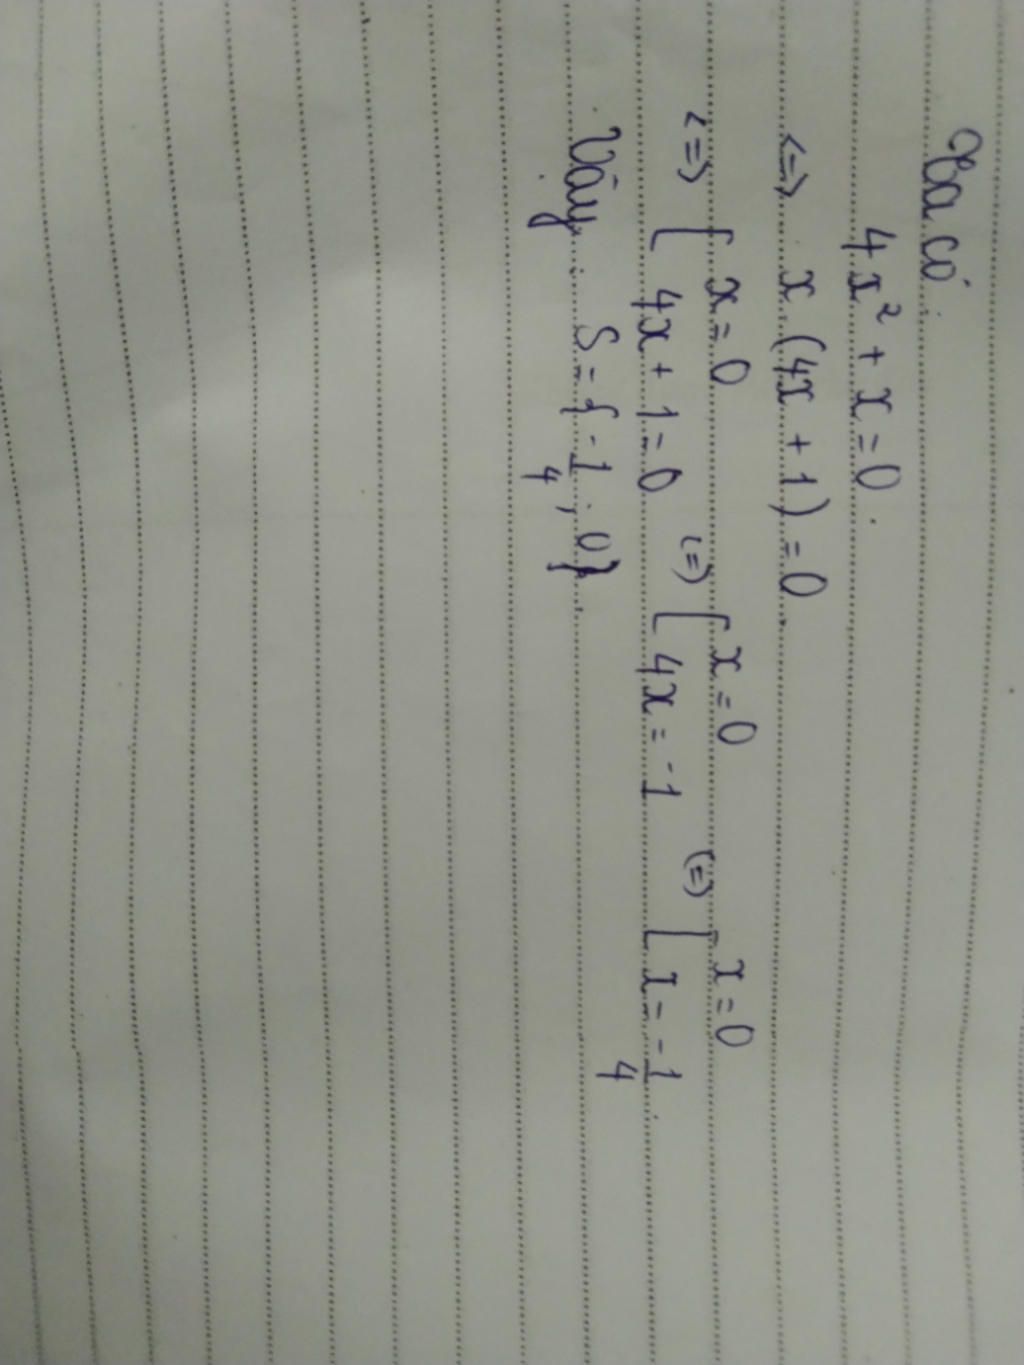 Ta có:
4x² + x = 0.
<=> x.(4x + 1) = 0
<=> [ x = 0 (=) [ x = 0 (=) [ x = 0
4x + 1 = 0 4x = -1 x = -1/4.
Vậy: S = { -1/4 ; 0}.